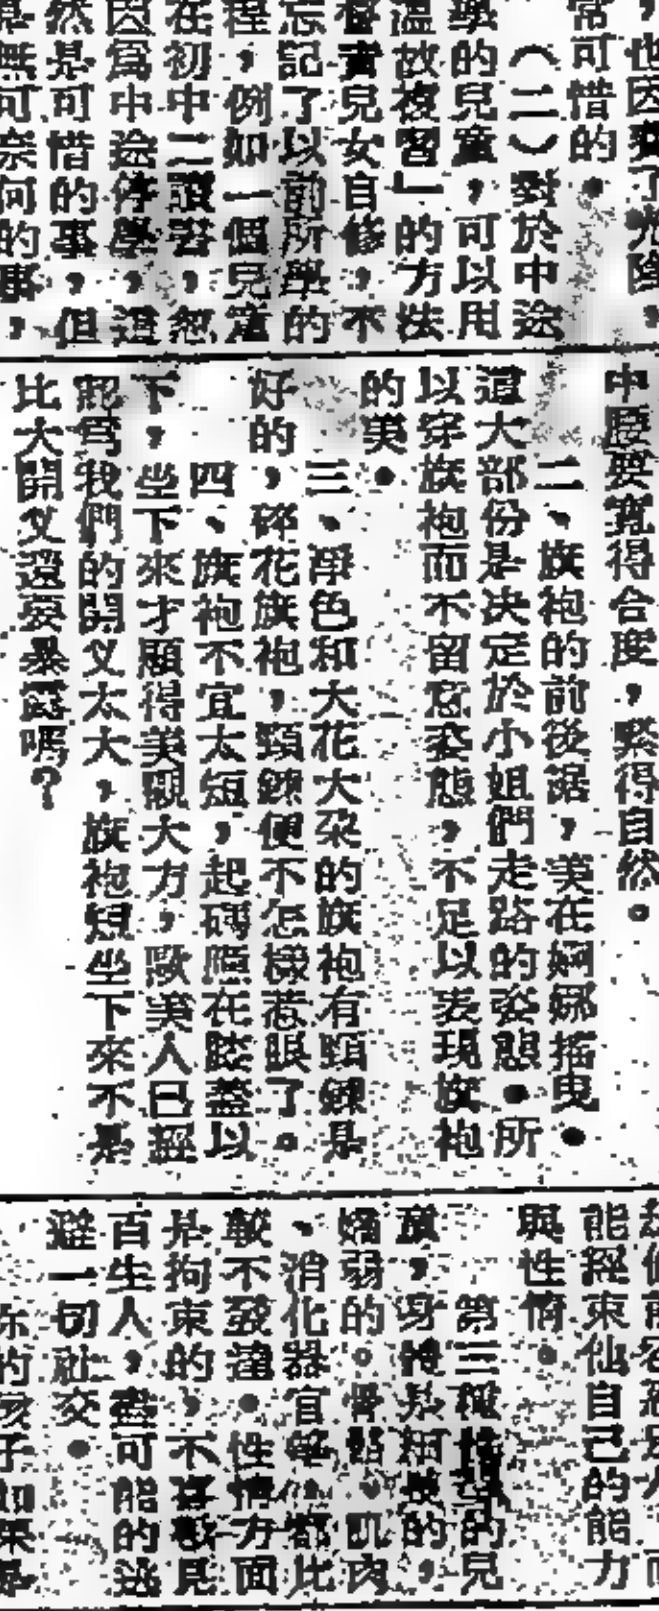 ，也因 了光陰，
常可惜的。
（二）對於中途
學的兒童，可以用
溫故複習」的方法
督責兒女自修，不
忘記了以前所學的
程，例如一個兒童
在初中二讀書，忽
因爲中途停學，這
然是可惜的事，但
是無可奈何的事，
中腰要寬得合度，緊得自然。
二、旗袍的前後裾，美在婀娜搖曳。
這大部份是決定於小姐們走路的姿態。所
以穿旗袍而不留意姿態，不足以表現旗袍
的美。
三、淨色和大花大朶的旗袍有頸鍊是
好的，碎花旗袍，頸鍊便不怎樣惹眼了。
四、旗袍不宜太短，起碼應在膝蓋以
下，坐下來才顯得美觀大方，歐美人已經
認爲我們的開叉太大，旗袍短坐下來不是
比大開叉還要暴露嗎？
能經束仙自己的能力
與性情。
第三種性學的兒
童，身體是細 的，
嬌弱的。骨骼。肌肉
、消化器官等 都比
較不發達。性情方面
是拘束的，不喜歡見
百生人，盡可能的逃
避一切社交。
你的孩子如果是